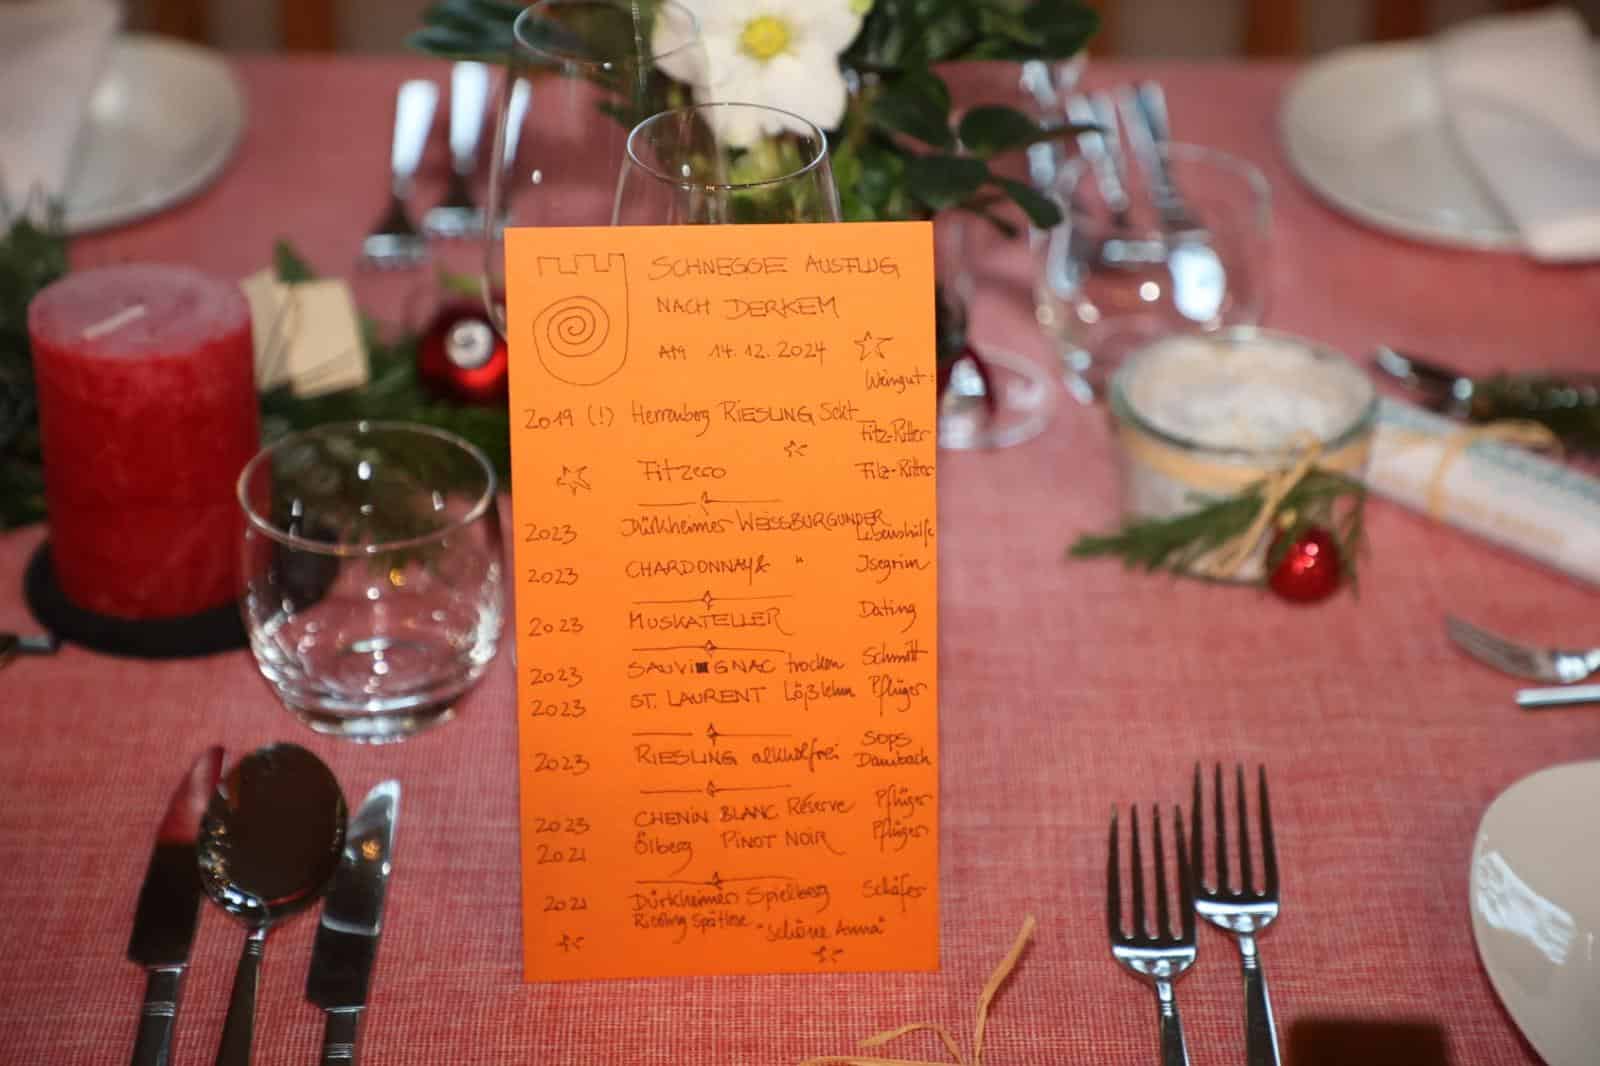 SCHNEGGE AUSFLUG
NACH DERKEM
AM 14.12.2024
Weingut:
2019 (!) Herrenberg RIESLING Sekt Fitz-Ritter
Fitzero Fitz-Ritter
2023 Dürkheimer WEISSBURGUNDER Lebenshilfe
2023 CHARDONNAY & " Isegrim
2023 MUSKATELLER Dating
2023 SAUVIGNAC trocken Schmitt
2023 ST. LAURENT Lößlehm Pflüger
2023 RIESLING alkholfrei Sops Dambach
2023 CHENIN BLANC Réserve Pflüger
2021 Ölberg PINOT NOIR Pflüger
2021 Dürkheimer Spielberg Schäfer
Riesling Spätlese "schöne Anna"